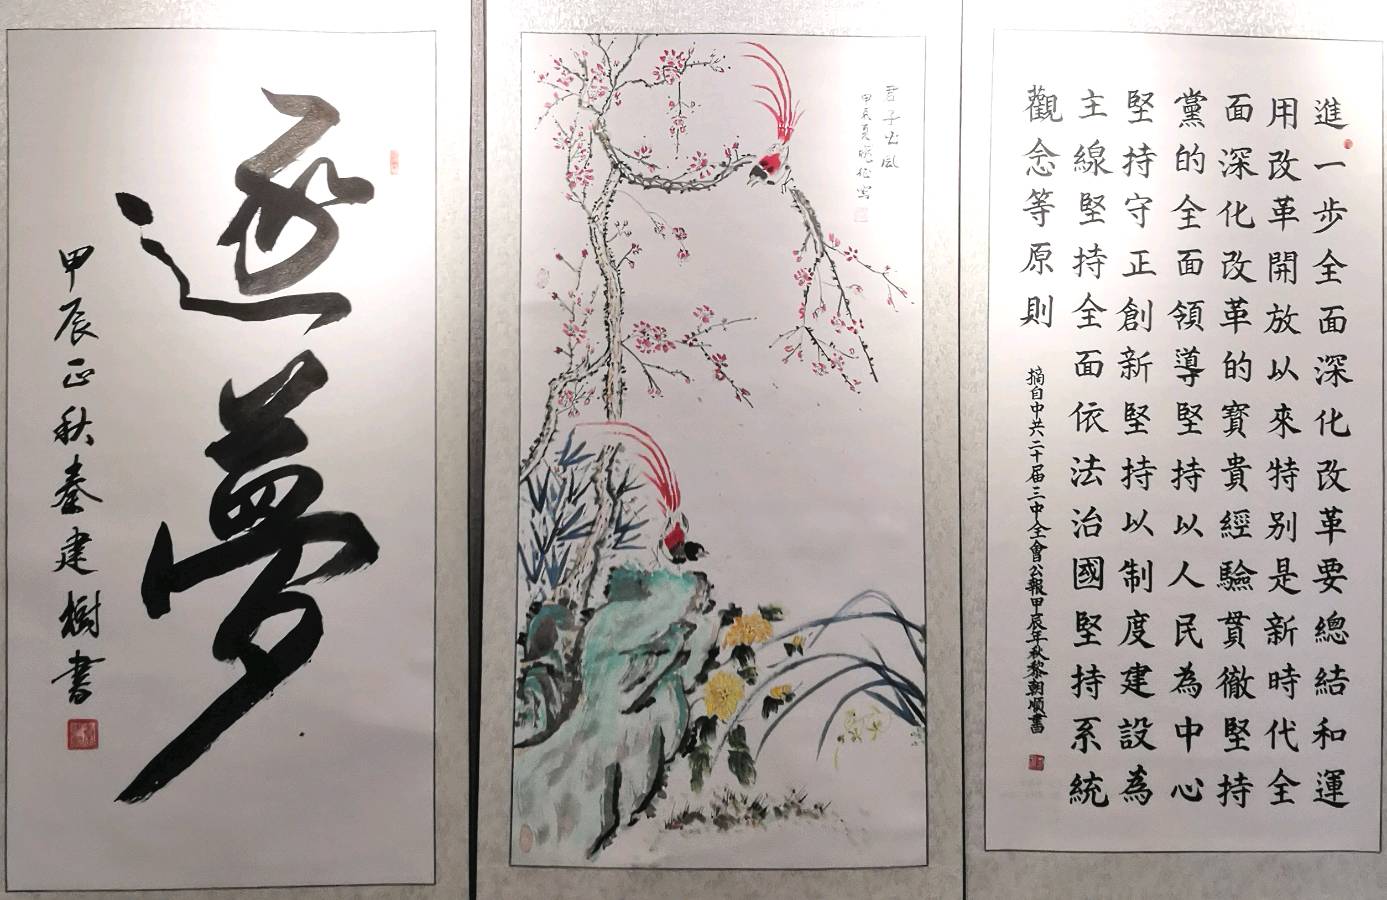 逐夢
甲辰正秋秦建樹書
君子之風
甲辰夏
進一步全面深化改革要總結和運
用改革開放以來特别是新時代全
面深化改革的寶貴經驗貫徹堅持
黨的全面領導堅持以人民為中心
堅持守正創新堅持以制度建設為
主線堅持全面依法治國堅持系統
觀念等原則
摘自中共二十届三中全會公報甲辰年秋黎朝順書